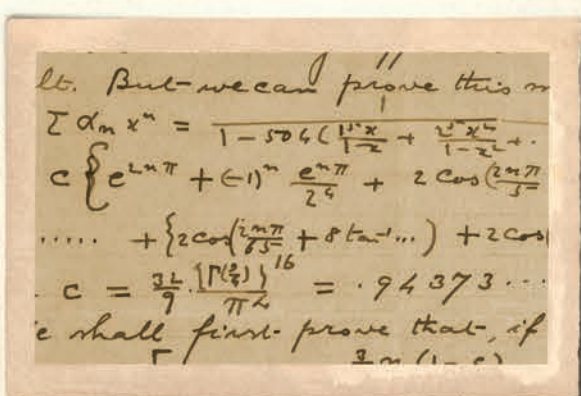 lt. But we can prove this m
Σ αₙ xⁿ = 1 / 1 − 504 ( 1⁵x/1−x + 2⁵x²/1−x² + .
c { e^{2nπ} + (−1)ⁿ e^{nπ}/2⁴ + 2 cos(2nπ/5
..... + {2cos(2nπ/65 + 8 tan⁻¹...) + 2 cos(
. c = 32/9 . {Γ(3/4)}^{16}/π⁴ = .94373...
e shall first prove that, if